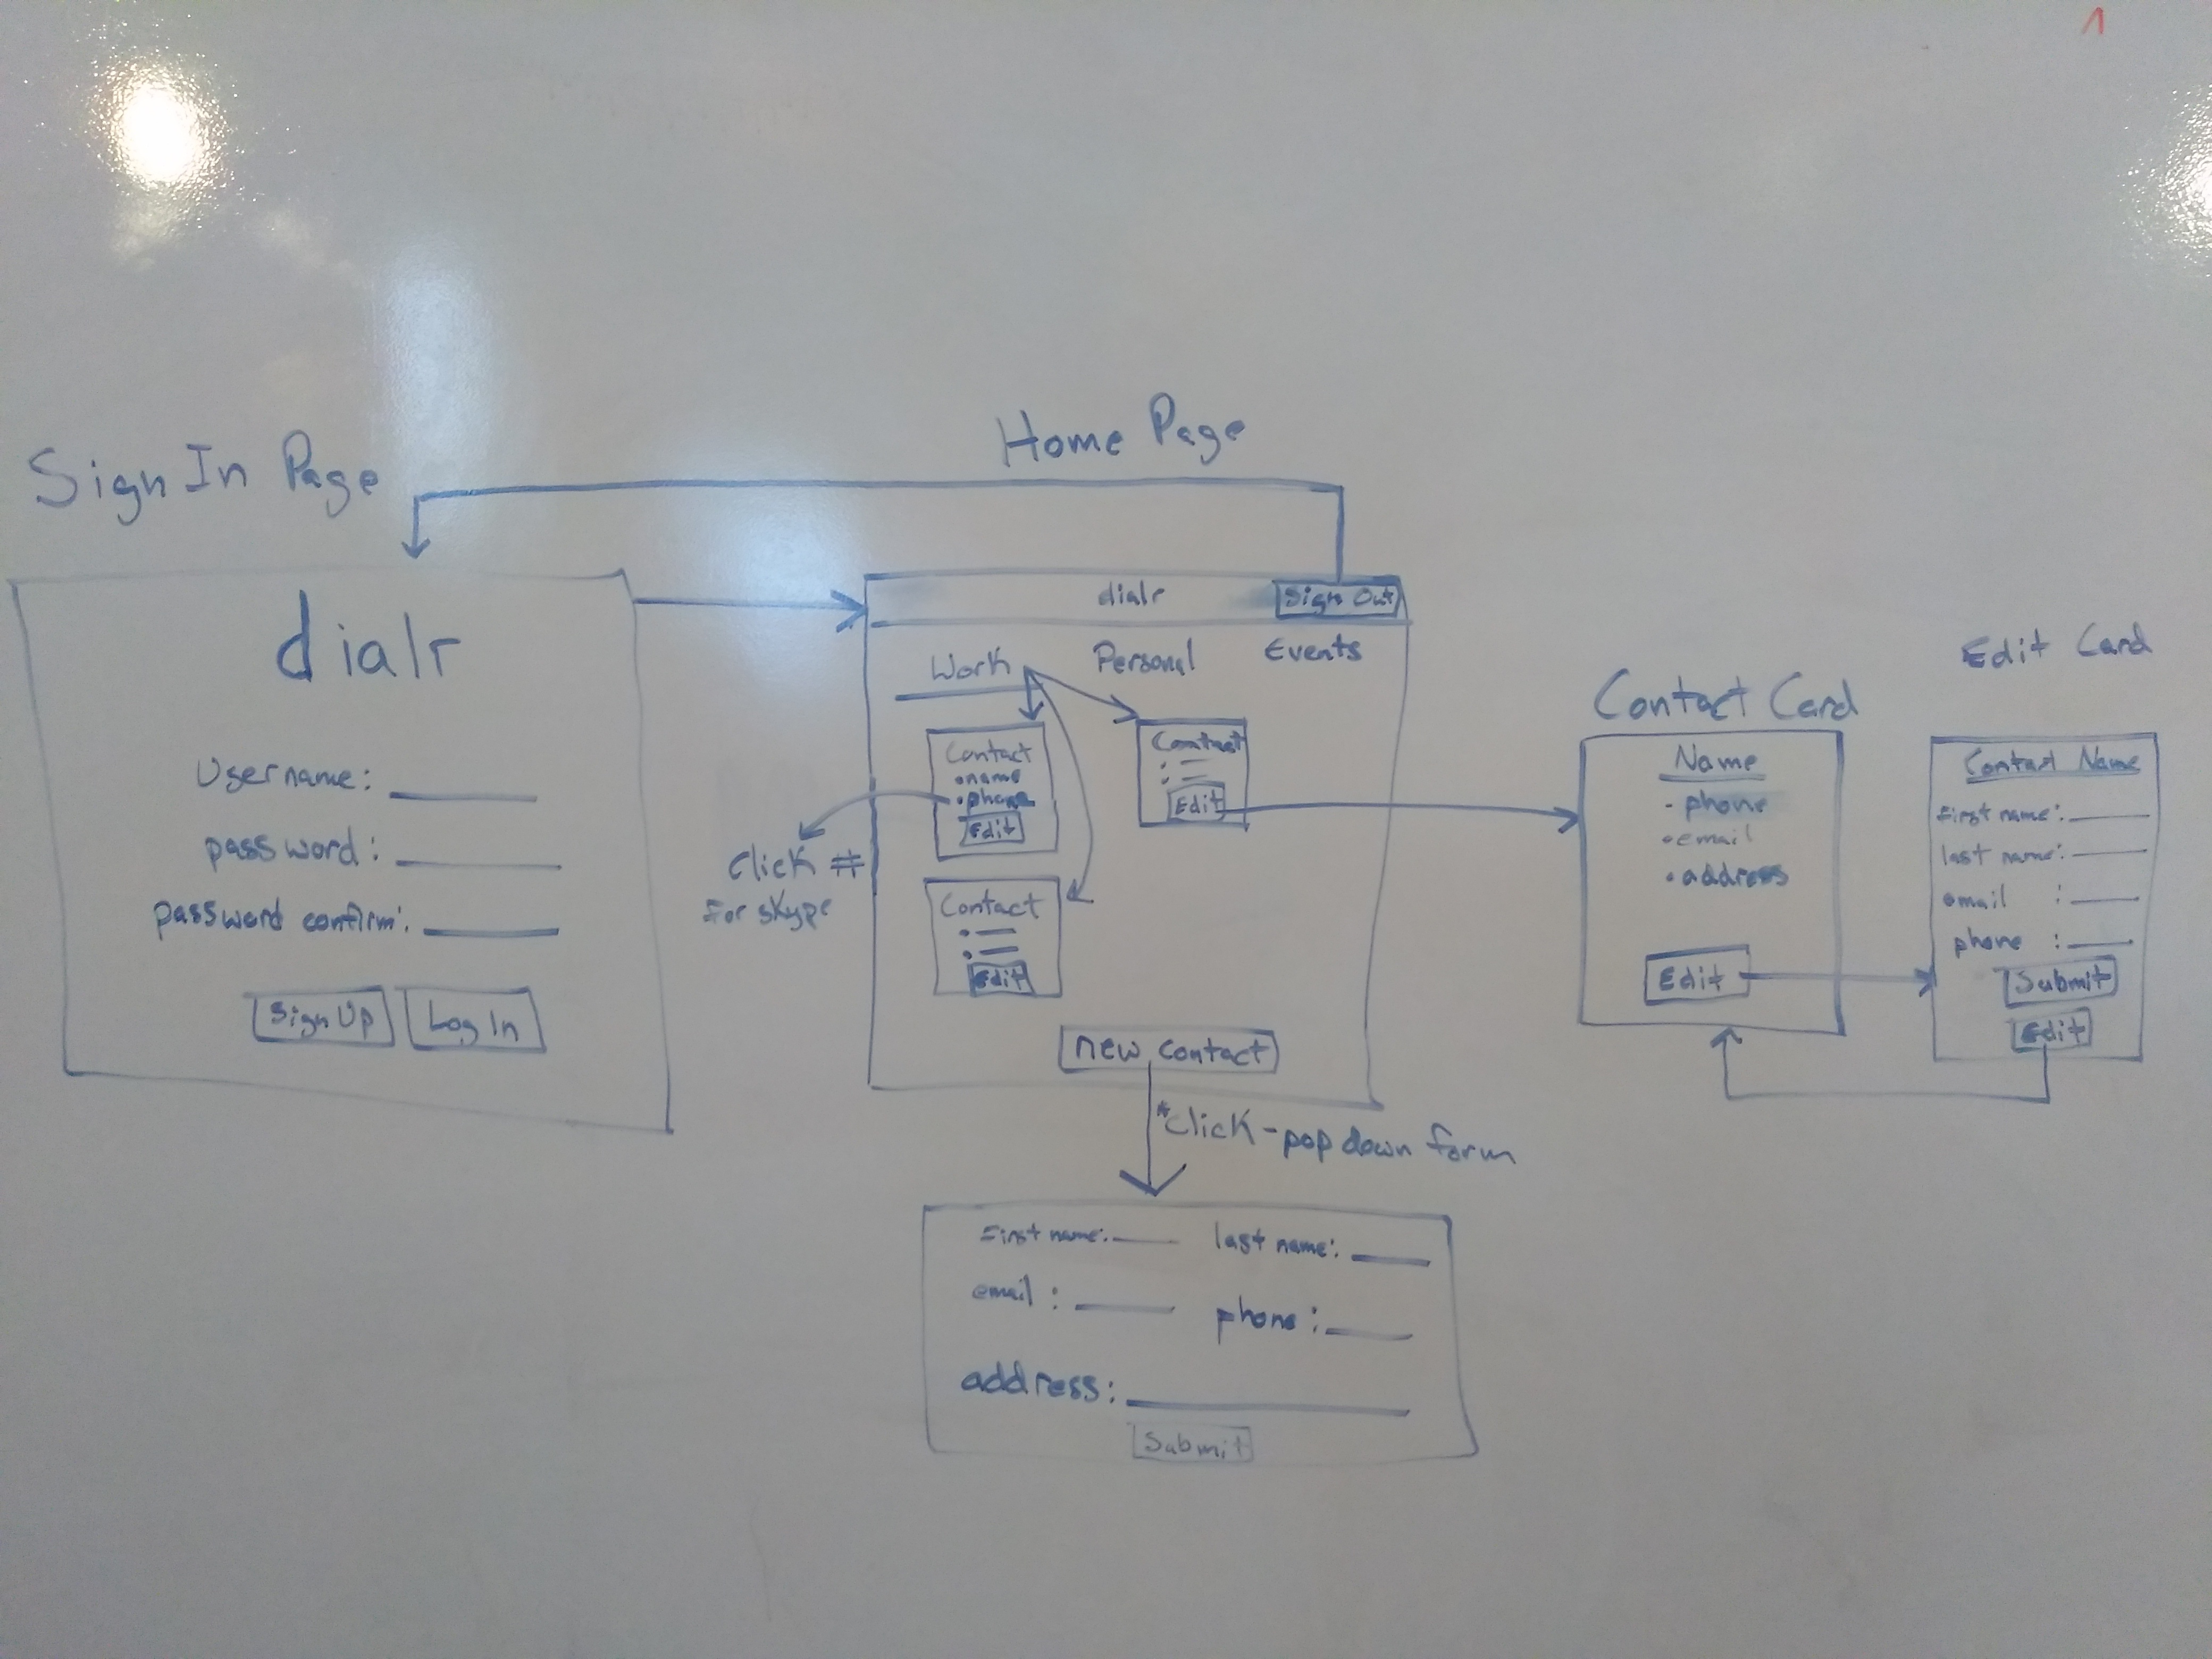 1
Sign In Page
dialr
Username:
password:
password confirm:
Sign Up
Log In
Home Page
dialr
Sign Out
Work
Personal
Events
Contact
• name
• phone
Edit
Click #
For skype
Contact
Edit
Contact
Edit
new contact
*Click - pop down form
First name:
last name:
email :
phone :
address:
Submit
Contact Card
Name
- phone
• email
• address
Edit
Edit Card
Contact Name
First name:
last name:
email :
phone :
Submit
Edit